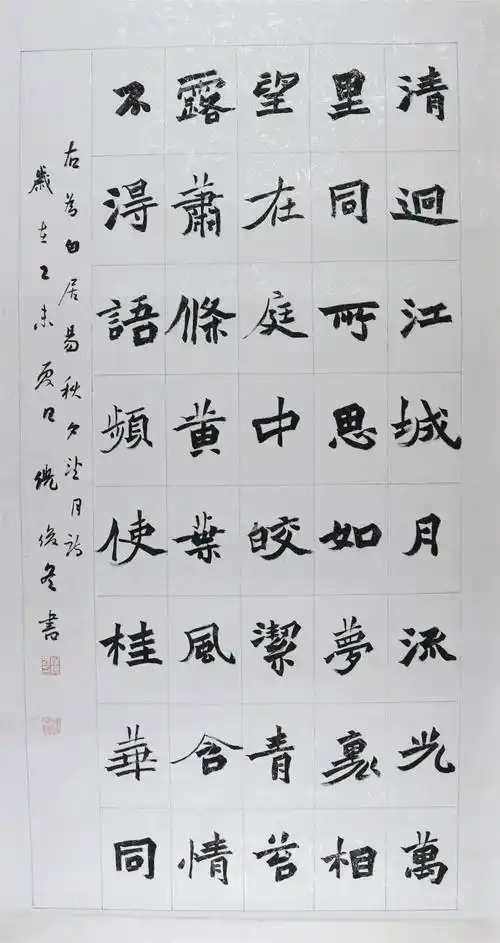 清迥江城月流光萬
里同所思如夢裏相
望在庭中皎潔青苔
露蕭條黄葉風含情
不得語頻使桂華同
右為白居易秋夕望月詩
歲在乙未夏日俊冬書